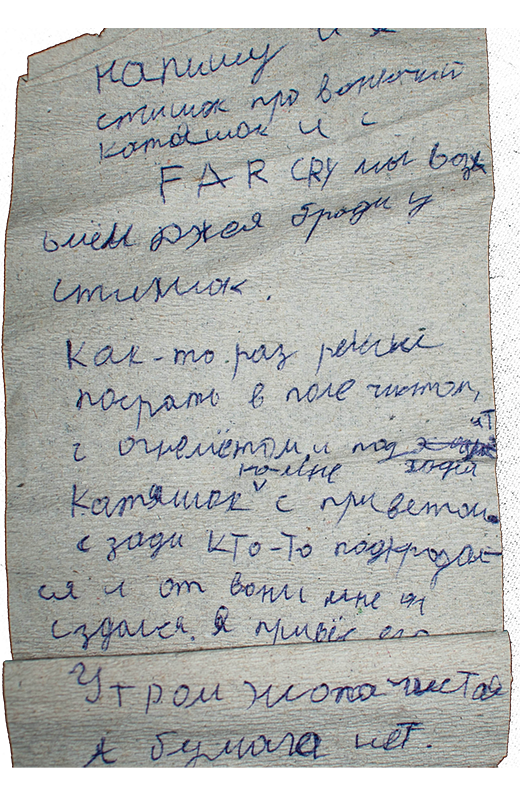 напишу и я
стишок про вонючий
каташок и с
FAR CRY мы возь
ьмём Джея бради у
стишок.
Как-то раз решил
посрать в поле чистом,
с огнемётом и под
ко мне
Каташок с приветом
сзади кто-то подкродал-
ся и от вони мне
сздался. Я привёс его
Утром жопа чистая
А бумага нет.